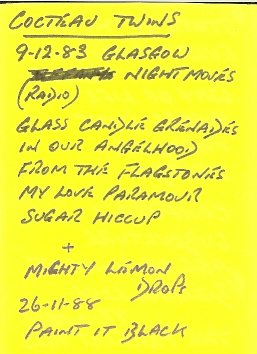 COCTEAU TWINS
9-12-83 GLASGOW
NIGHTMOVES
(RADIO)
GLASS CANDLE GRENADES
IN OUR ANGELHOOD
FROM THE FLAGSTONES
MY LOVE PARAMOUR
SUGAR HICCUP
+
MIGHTY LEMON
DROPS
26-11-88
PAINT IT BLACK